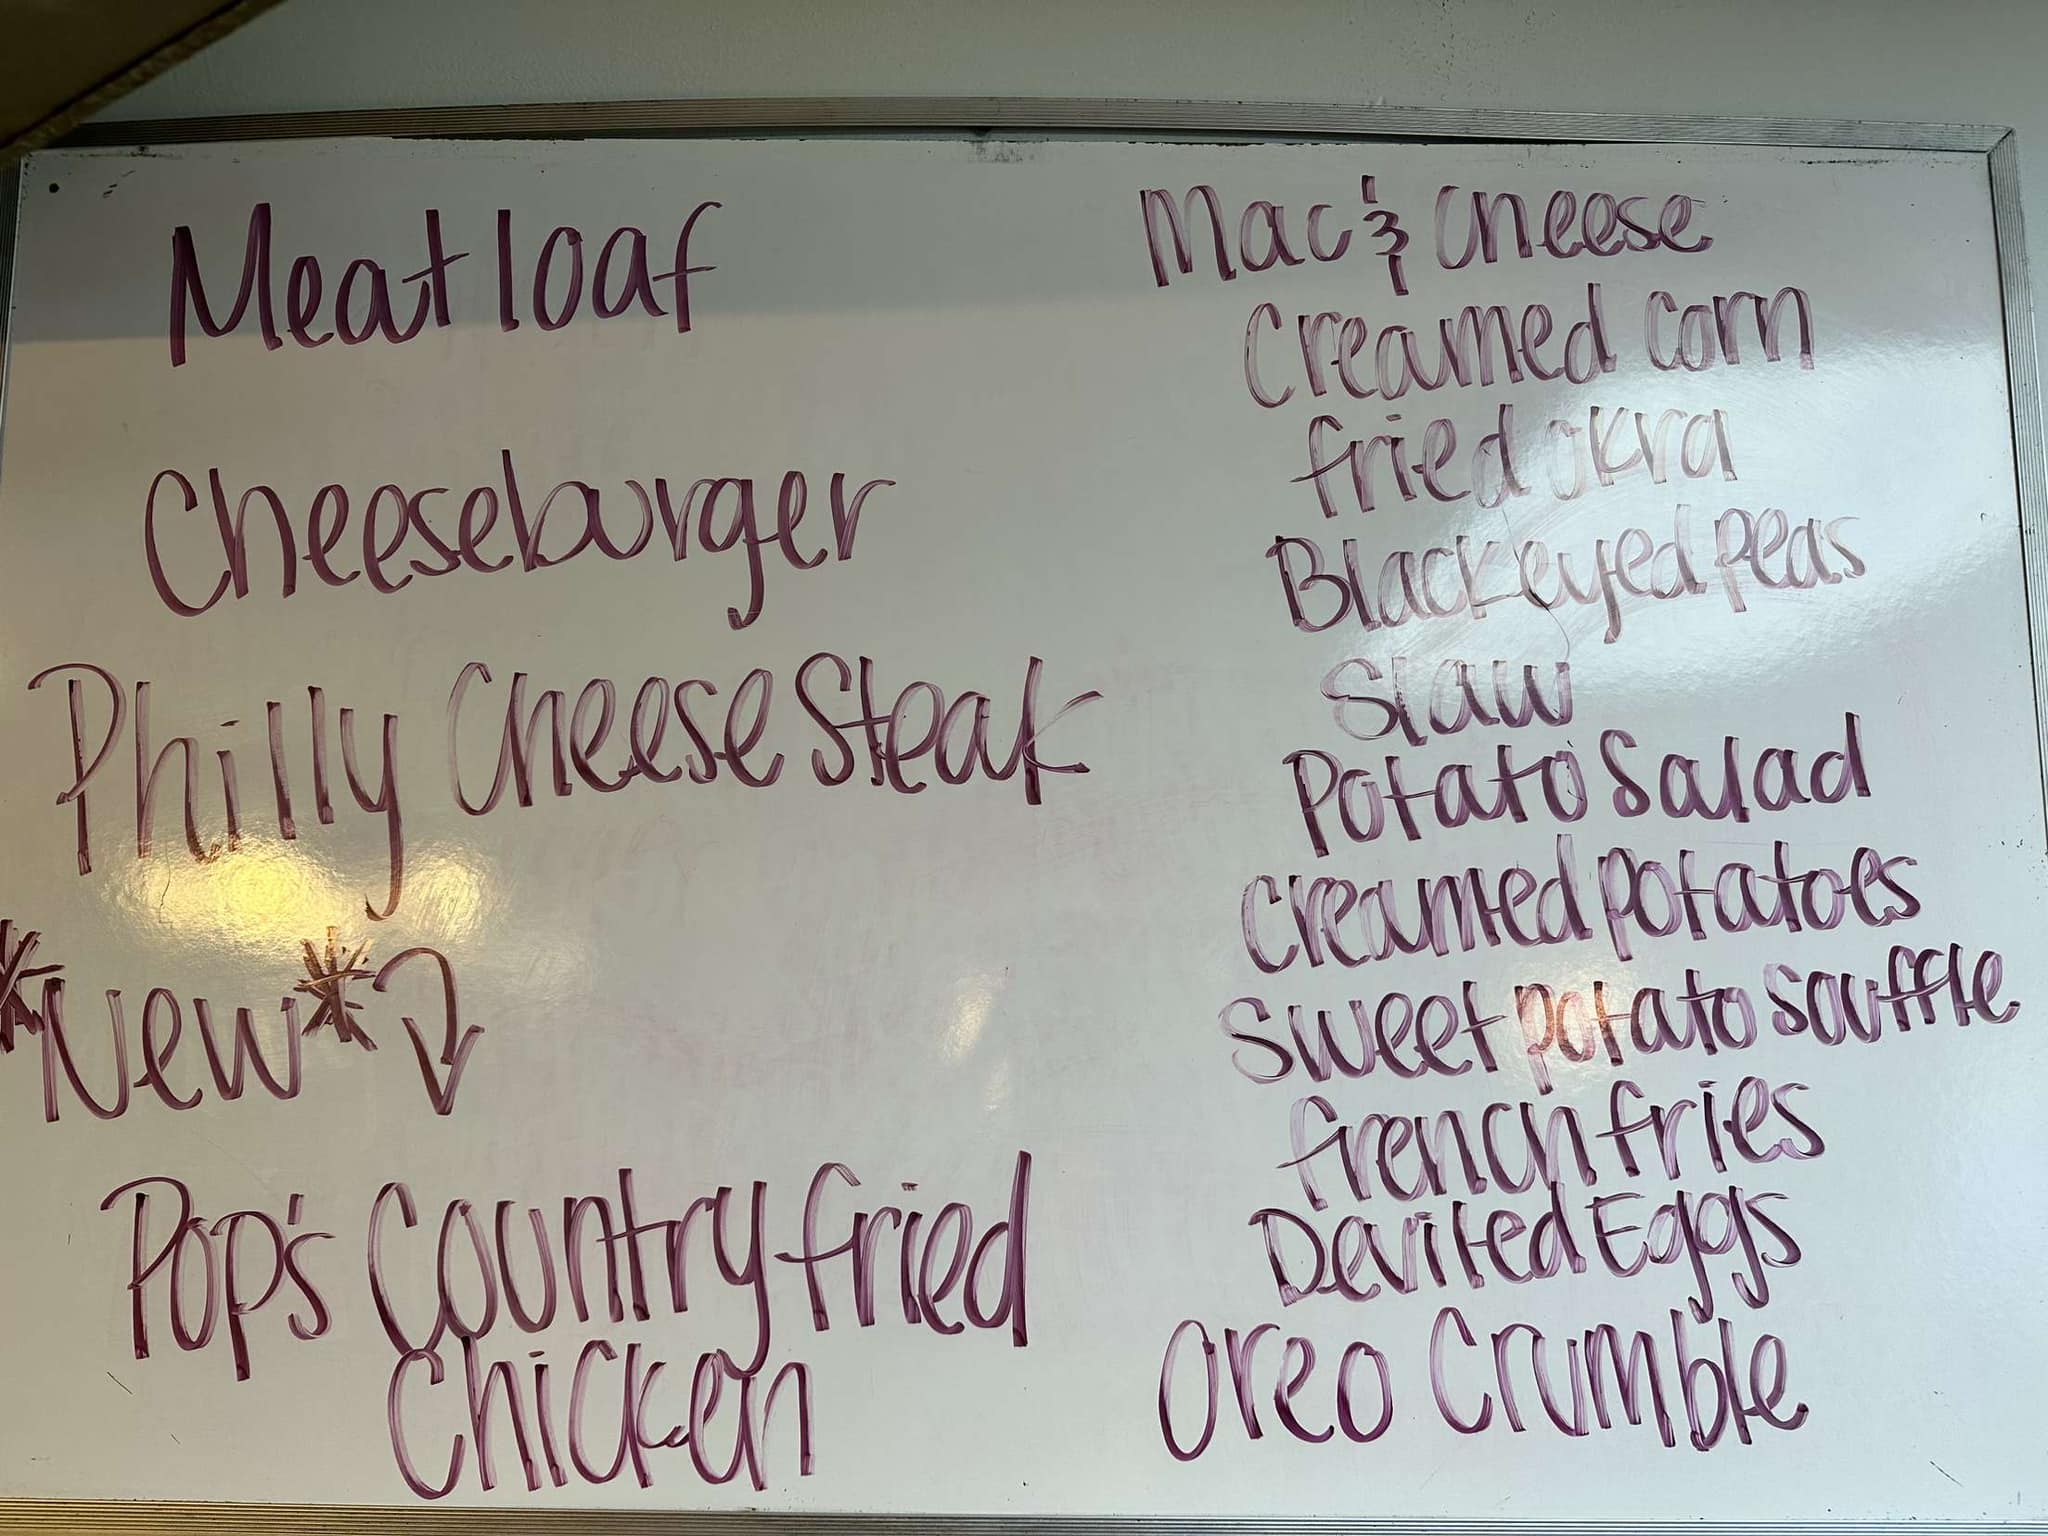 Meatloaf
Cheeseburger
Philly Cheese Steak
*New*
Pop's Country fried
Chicken
Mac & Cheese
Creamed corn
fried okra
Black eyed peas
Slaw
Potato Salad
Creamed potatoes
Sweet potato souffle
french fries
Deviled Eggs
Oreo Crumble